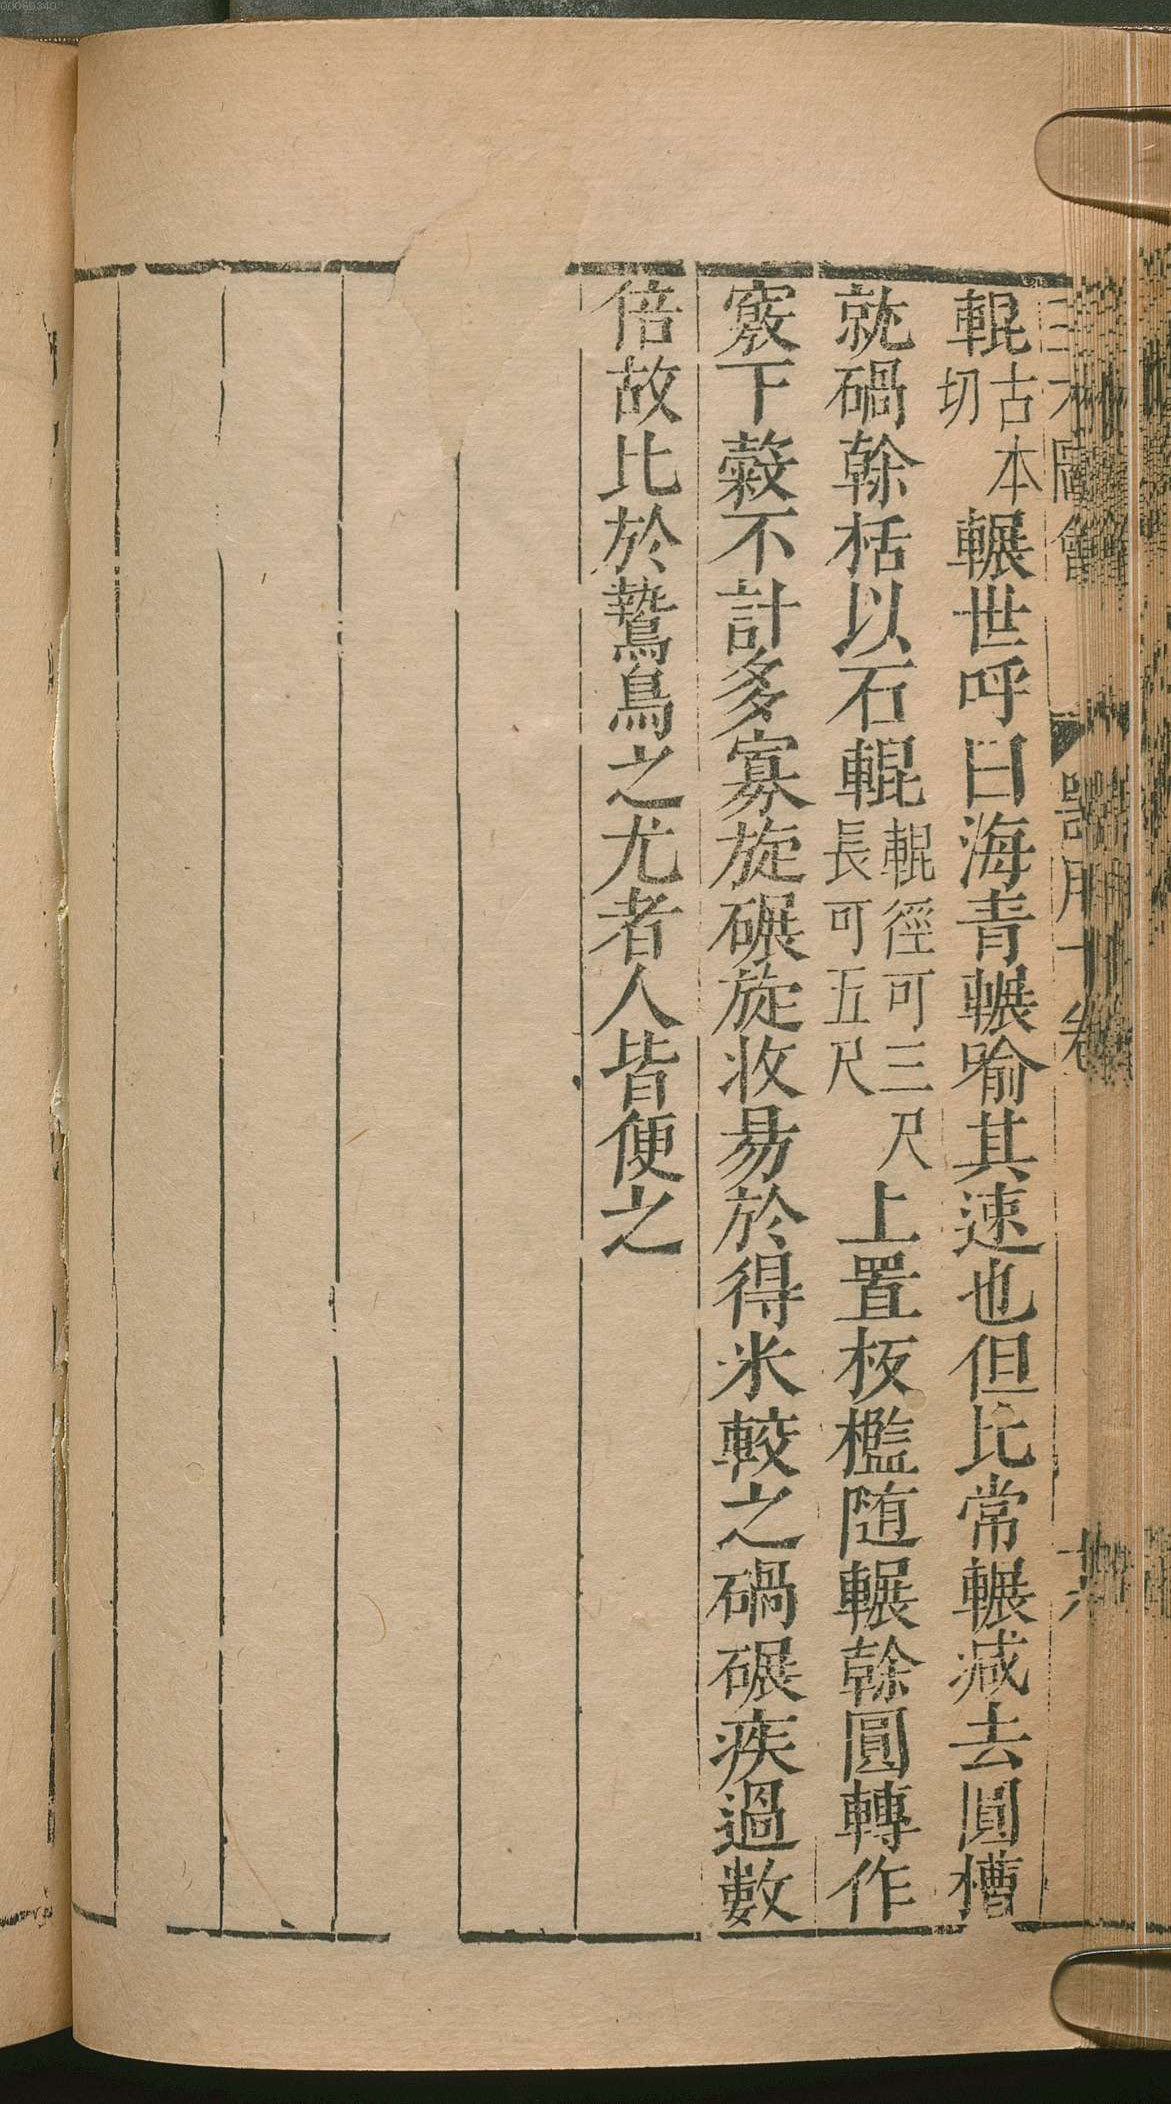 三才圖會 器用十卷 十六
輥古本切輾世呼曰海青輾喻其速也但比常輾減去圓槽
就碢榦栝以石輥輥徑可三尺長可五尺上置板檻随輾榦圓轉作
竅下穀不計多寡旋碾旋收昜於得米較之碢碾疾過數
倍故比於鷙鳥之尤者人皆便之